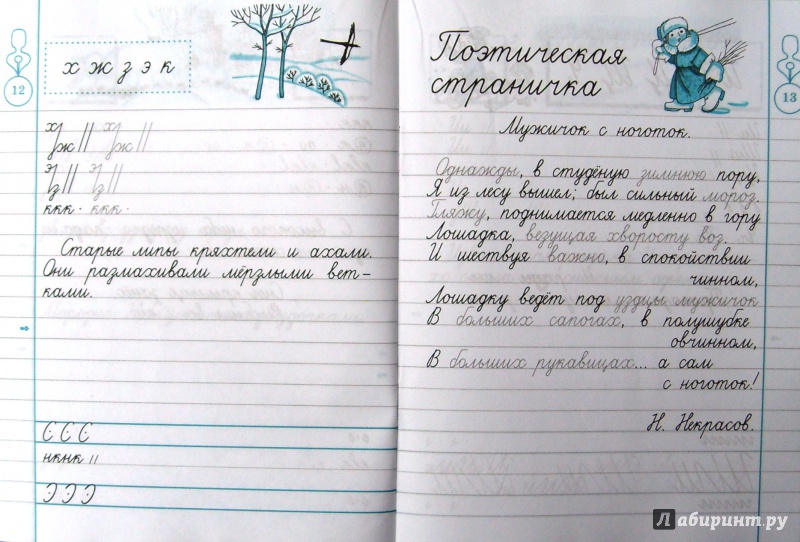 12
х ж з э к
х
ж || х ж ||
э
з || э з ||
ккк · ккк ·
Старые липы кряхтели и ахали.
Они размахивали мёрзлыми вет-
ками.
Є Є Є
нкнк ||
Э Э Э
Поэтическая
страничка
13
Мужичок с ноготок.
Однажды, в студёную зимнюю пору,
Я из лесу вышел; был сильный мороз.
Гляжу, поднимается медленно в гору
Лошадка, везущая хворосту воз.
И шествуя важно, в спокойствии
чинном,
Лошадку ведёт под уздцы мужичок
В больших сапогах, в полушубке
овчинном,
В больших рукавицах... а сам
с ноготок!
Н. Некрасов.
Лабиринт.ру